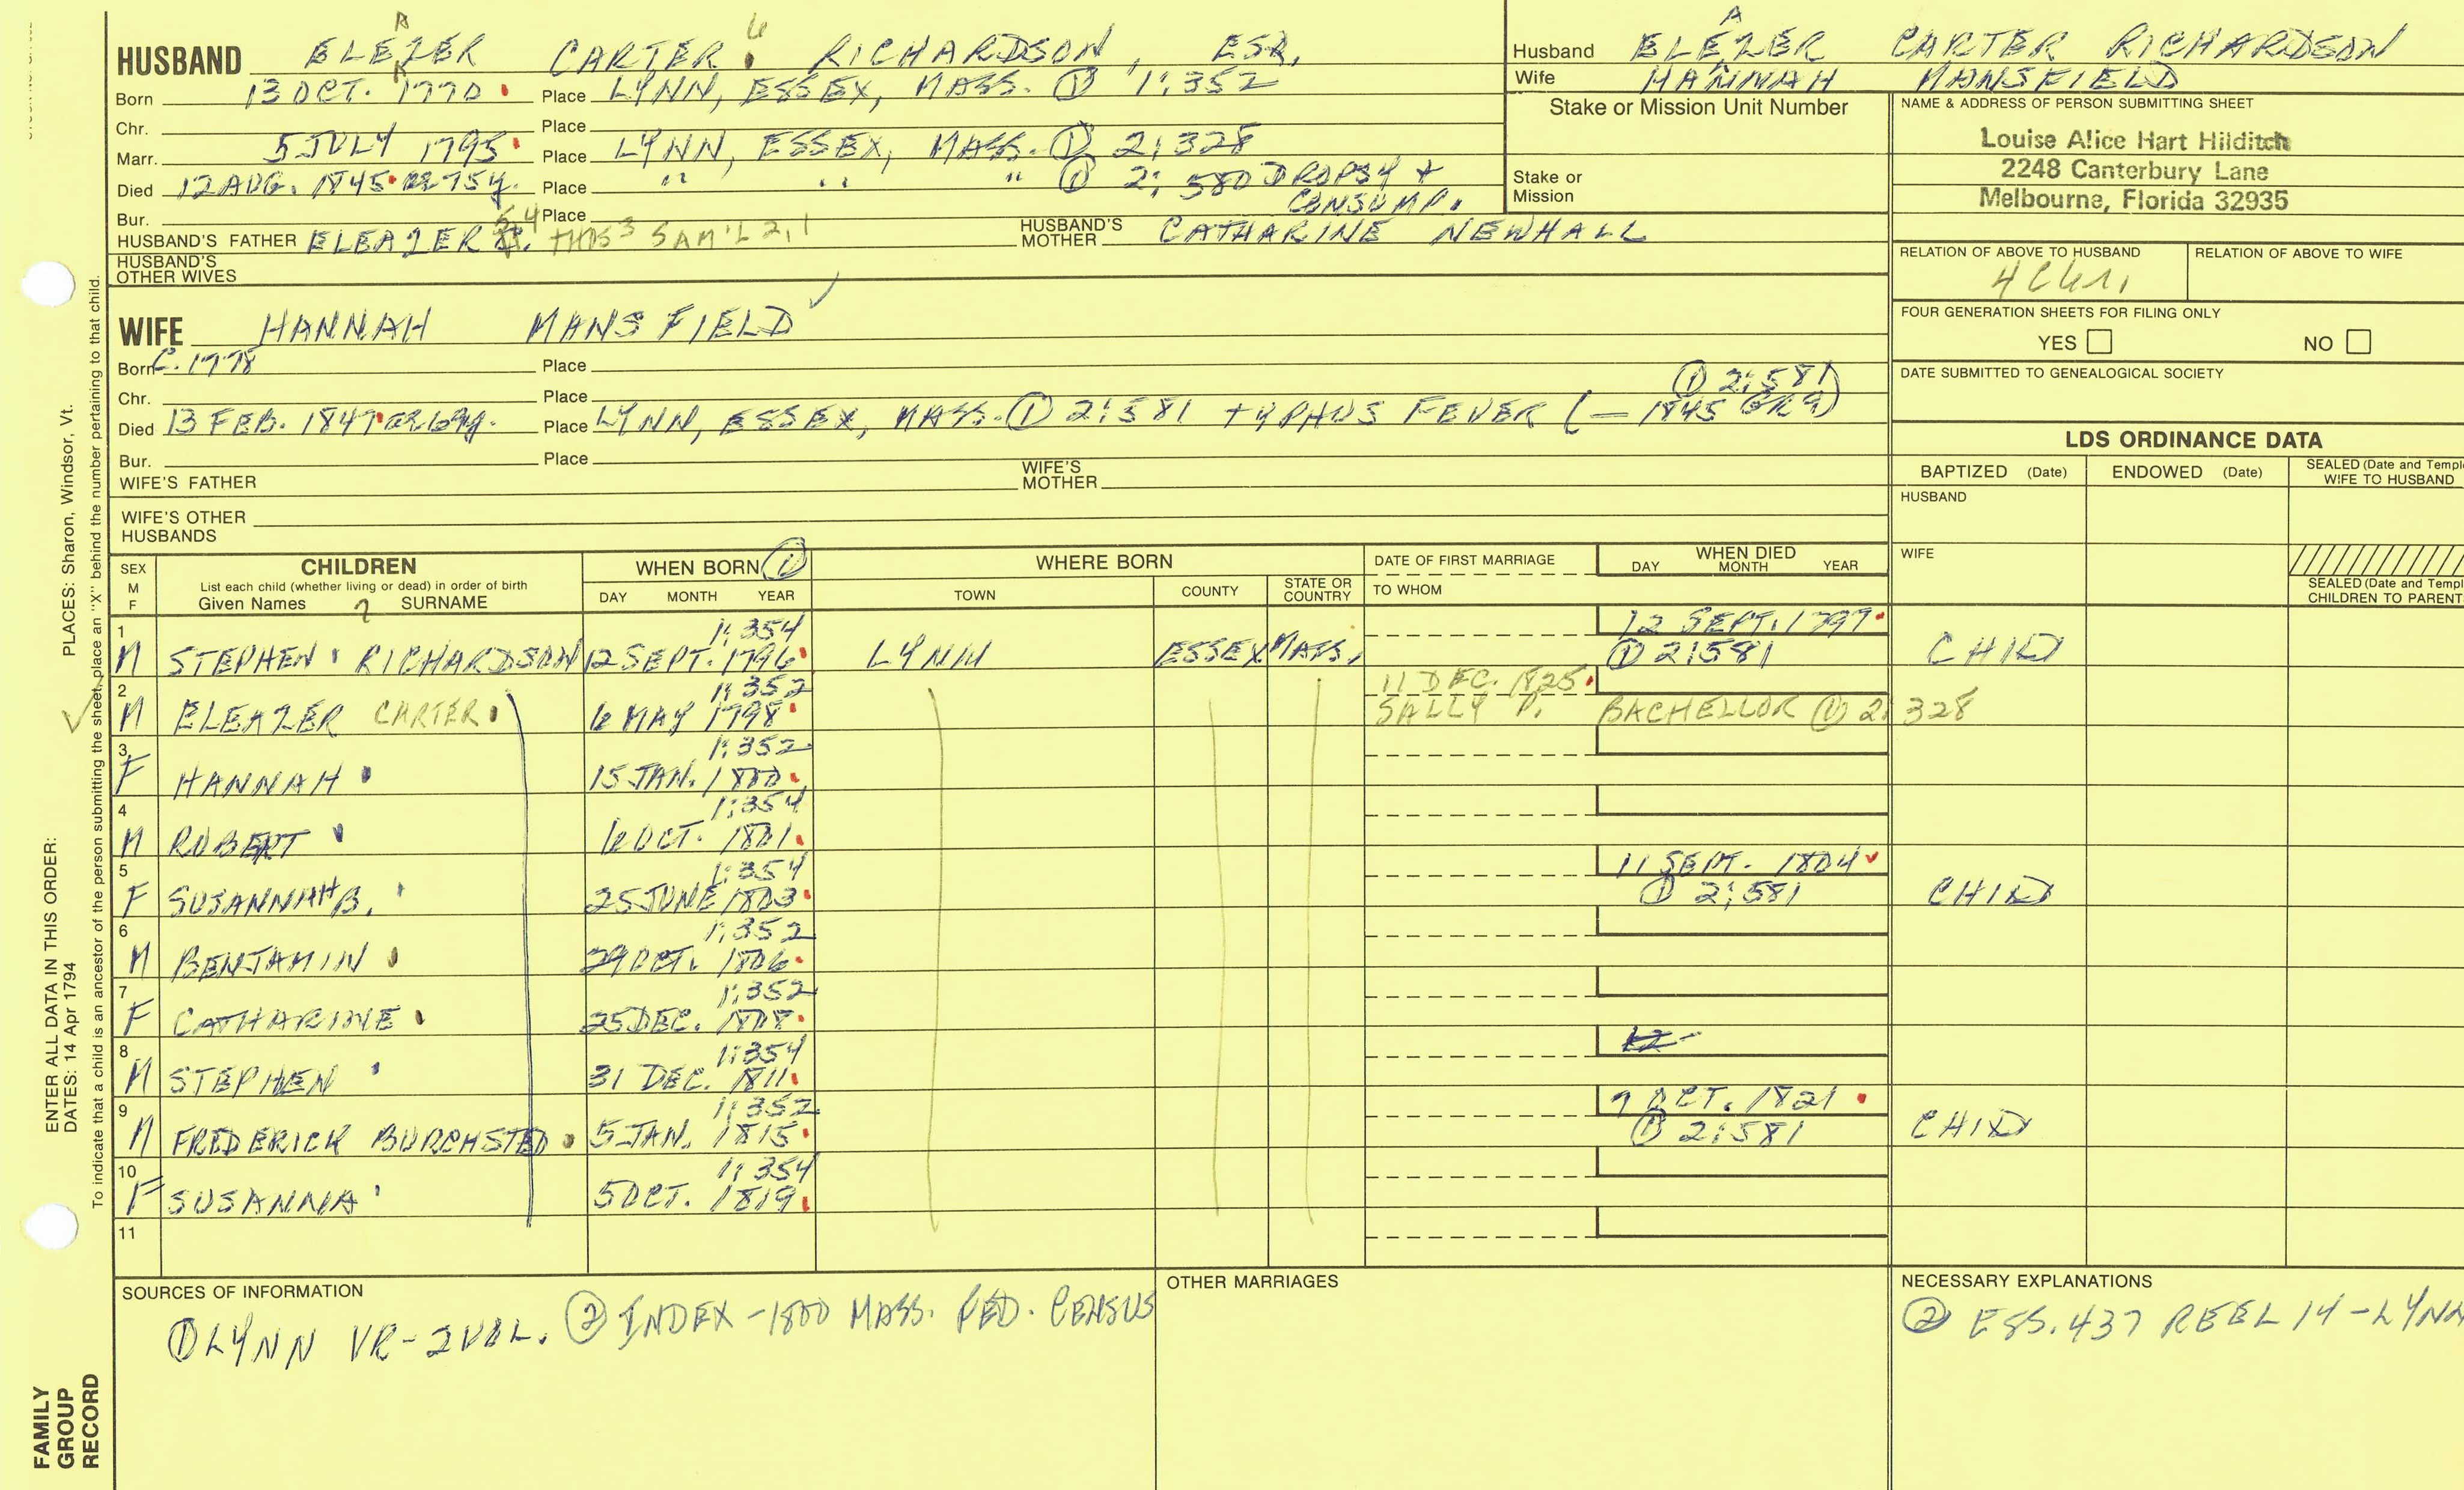 HUSBAND ELEAZER CARTER 6 RICHARDSON, ESQ.
Born 13 OCT. 1770 Place LYNN, ESSEX, MASS. ① 1:352
Chr. Place
Marr. 5 JULY 1795 Place LYNN, ESSEX, MASS. ① 2:328
Died 12 AUG. 1845 AE 75y. Place " " " ① 2:580 DROPSY + CONSUMP.
Bur. Place
HUSBAND'S FATHER ELEAZER 4 THOS 3 SAM'L 2, 1 HUSBAND'S MOTHER CATHARINE NEWHALL
HUSBAND'S OTHER WIVES
Husband ELEAZER CARTER RICHARDSON
Wife HANNAH MANSFIELD
Stake or Mission Unit Number
Stake or Mission
NAME & ADDRESS OF PERSON SUBMITTING SHEET
Louise Alice Hart Hilditch
2248 Canterbury Lane
Melbourne, Florida 32935
RELATION OF ABOVE TO HUSBAND RELATION OF ABOVE TO WIFE
FOUR GENERATION SHEETS FOR FILING ONLY
YES NO
DATE SUBMITTED TO GENEALOGICAL SOCIETY
WIFE HANNAH MANSFIELD
Born C. 1778 Place
Chr. Place
Died 13 FEB. 1847 AE 69y. Place LYNN, ESSEX, MASS. ① 2:581 TYPHUS FEVER (— 1845 GR9) ① 2:581
Bur. Place
WIFE'S FATHER WIFE'S MOTHER
WIFE'S OTHER HUSBANDS
LDS ORDINANCE DATA
BAPTIZED (Date) ENDOWED (Date) SEALED (Date and Templ WIFE TO HUSBAND
HUSBAND
WIFE
SEALED (Date and Templ CHILDREN TO PARENT
SEX M F
CHILDREN
List each child (whether living or dead) in order of birth
Given Names 7 SURNAME
WHEN BORN ① DAY MONTH YEAR
WHERE BORN TOWN COUNTY STATE OR COUNTRY
DATE OF FIRST MARRIAGE
TO WHOM
WHEN DIED DAY MONTH YEAR
1 M STEPHEN RICHARDSON 12 SEPT. 1796 1:354 LYNN ESSEX MASS. 12 SEPT. 1797 ① 2:581 CHILD
2 M ELEAZER CARTER 6 MAY 1798 1:352 11 DEC. 1825 SALLY P. BACHELLOR ① 2:328
3 F HANNAH 15 JAN. 1800 1:352
4 M ROBERT 6 OCT. 1801 1:354
5 F SUSANNAH B. 25 JUNE 1803 1:354 11 SEPT. 1804 ① 2:581 CHILD
6 M BENJAMIN 29 OCT. 1806 1:352
7 F CATHARINE 25 DEC. 1808 1:352
8 M STEPHEN 31 DEC. 1811 1:354
9 M FREDERICK BURCHSTED 5 JAN. 1815 1:352 7 OCT. 1821 ① 2:581 CHILD
10 F SUSANNA 5 OCT. 1819 1:354
11
SOURCES OF INFORMATION
① LYNN VR-2VOL. ② INDEX-1800 MASS. FED. CENSUS
OTHER MARRIAGES
NECESSARY EXPLANATIONS
② ESS. 437 REEL 14-LYNN
ENTER ALL DATA IN THIS ORDER:
DATES: 14 Apr 1794 PLACES: Sharon, Windsor, Vt.
To indicate that a child is an ancestor of the person submitting the sheet, place an "X" behind the number pertaining to that child.
FAMILY
GROUP
RECORD